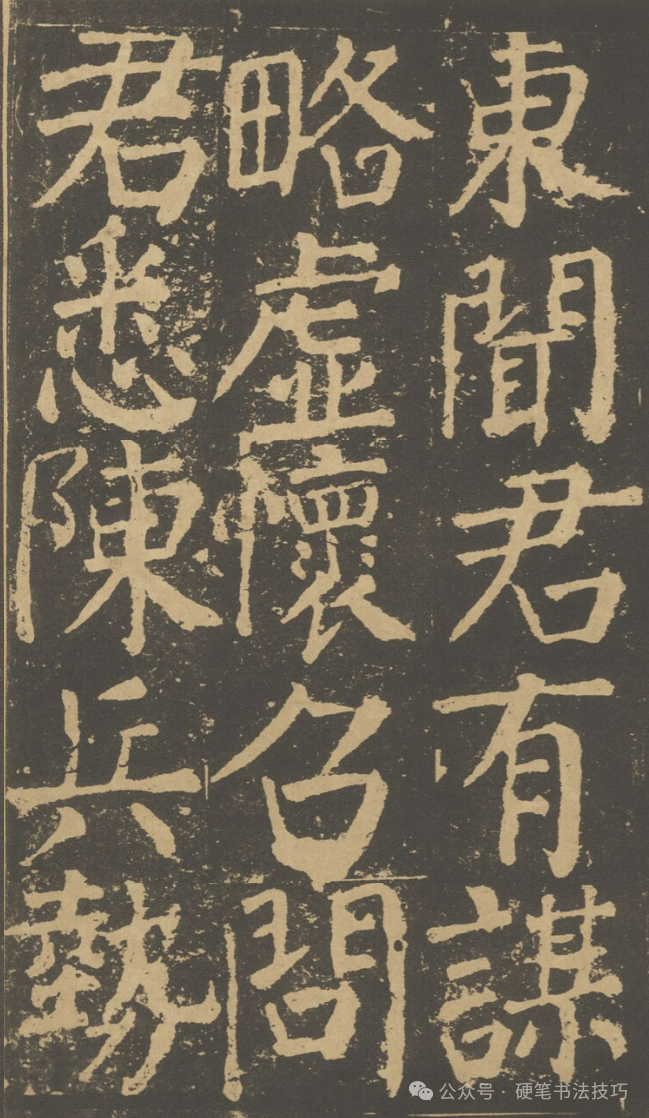 東聞君有謀
略虛懷召問
君悉陳兵勢
公众号 · 硬笔书法技巧